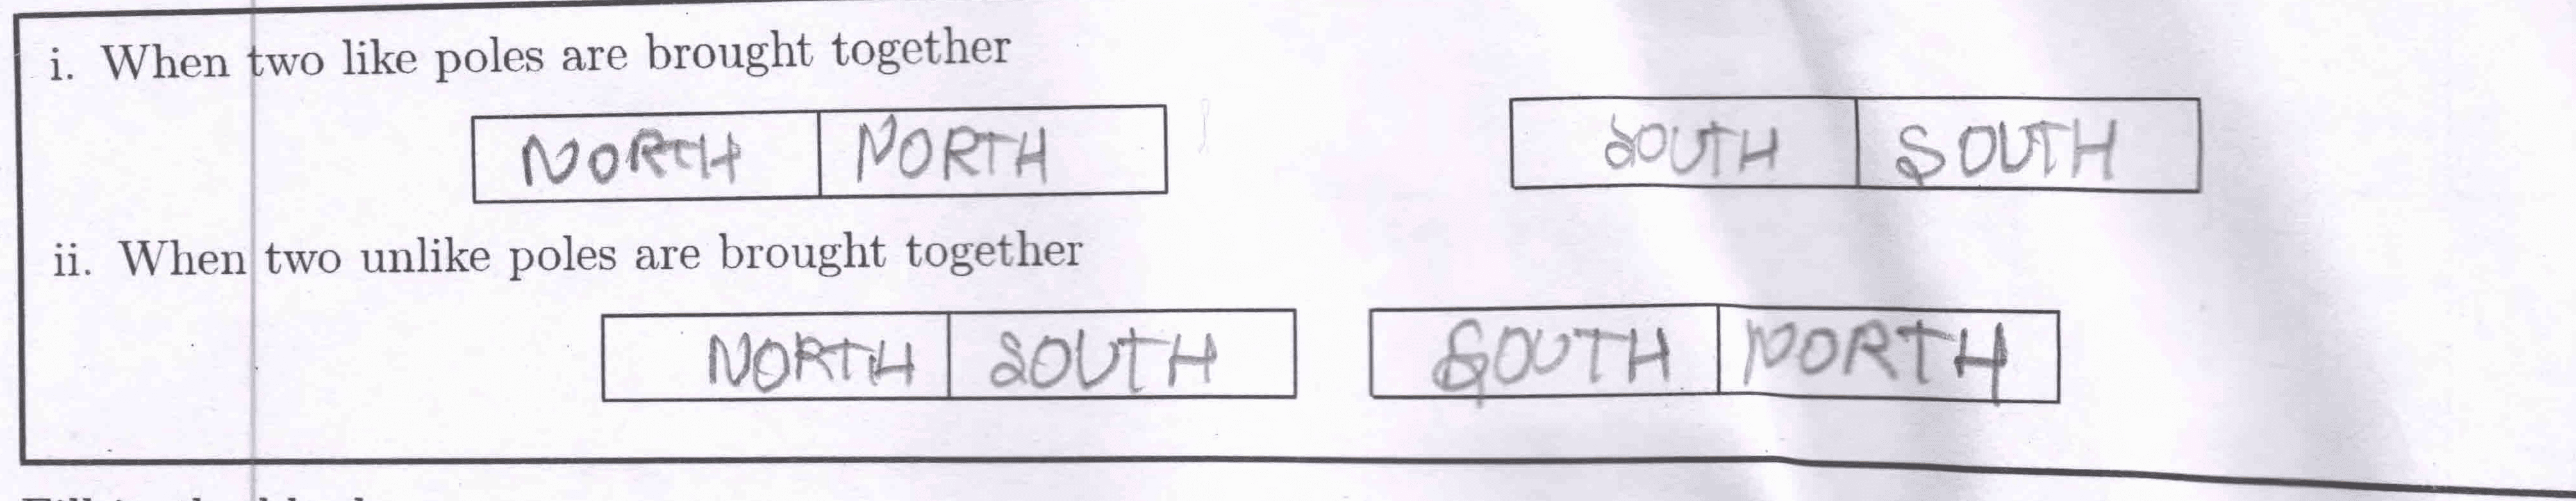 i. When two like poles are brought together
NORTH NORTH SOUTH SOUTH
ii. When two unlike poles are brought together
NORTH SOUTH SOUTH NORTH